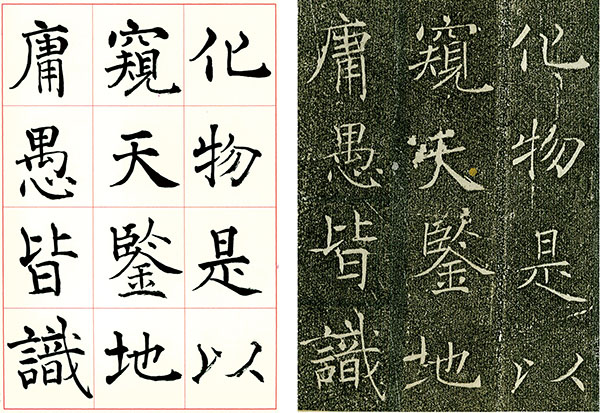 化物是以
窺天鑒地
庸愚皆識
化物是以
窺天鑒地
庸愚皆識